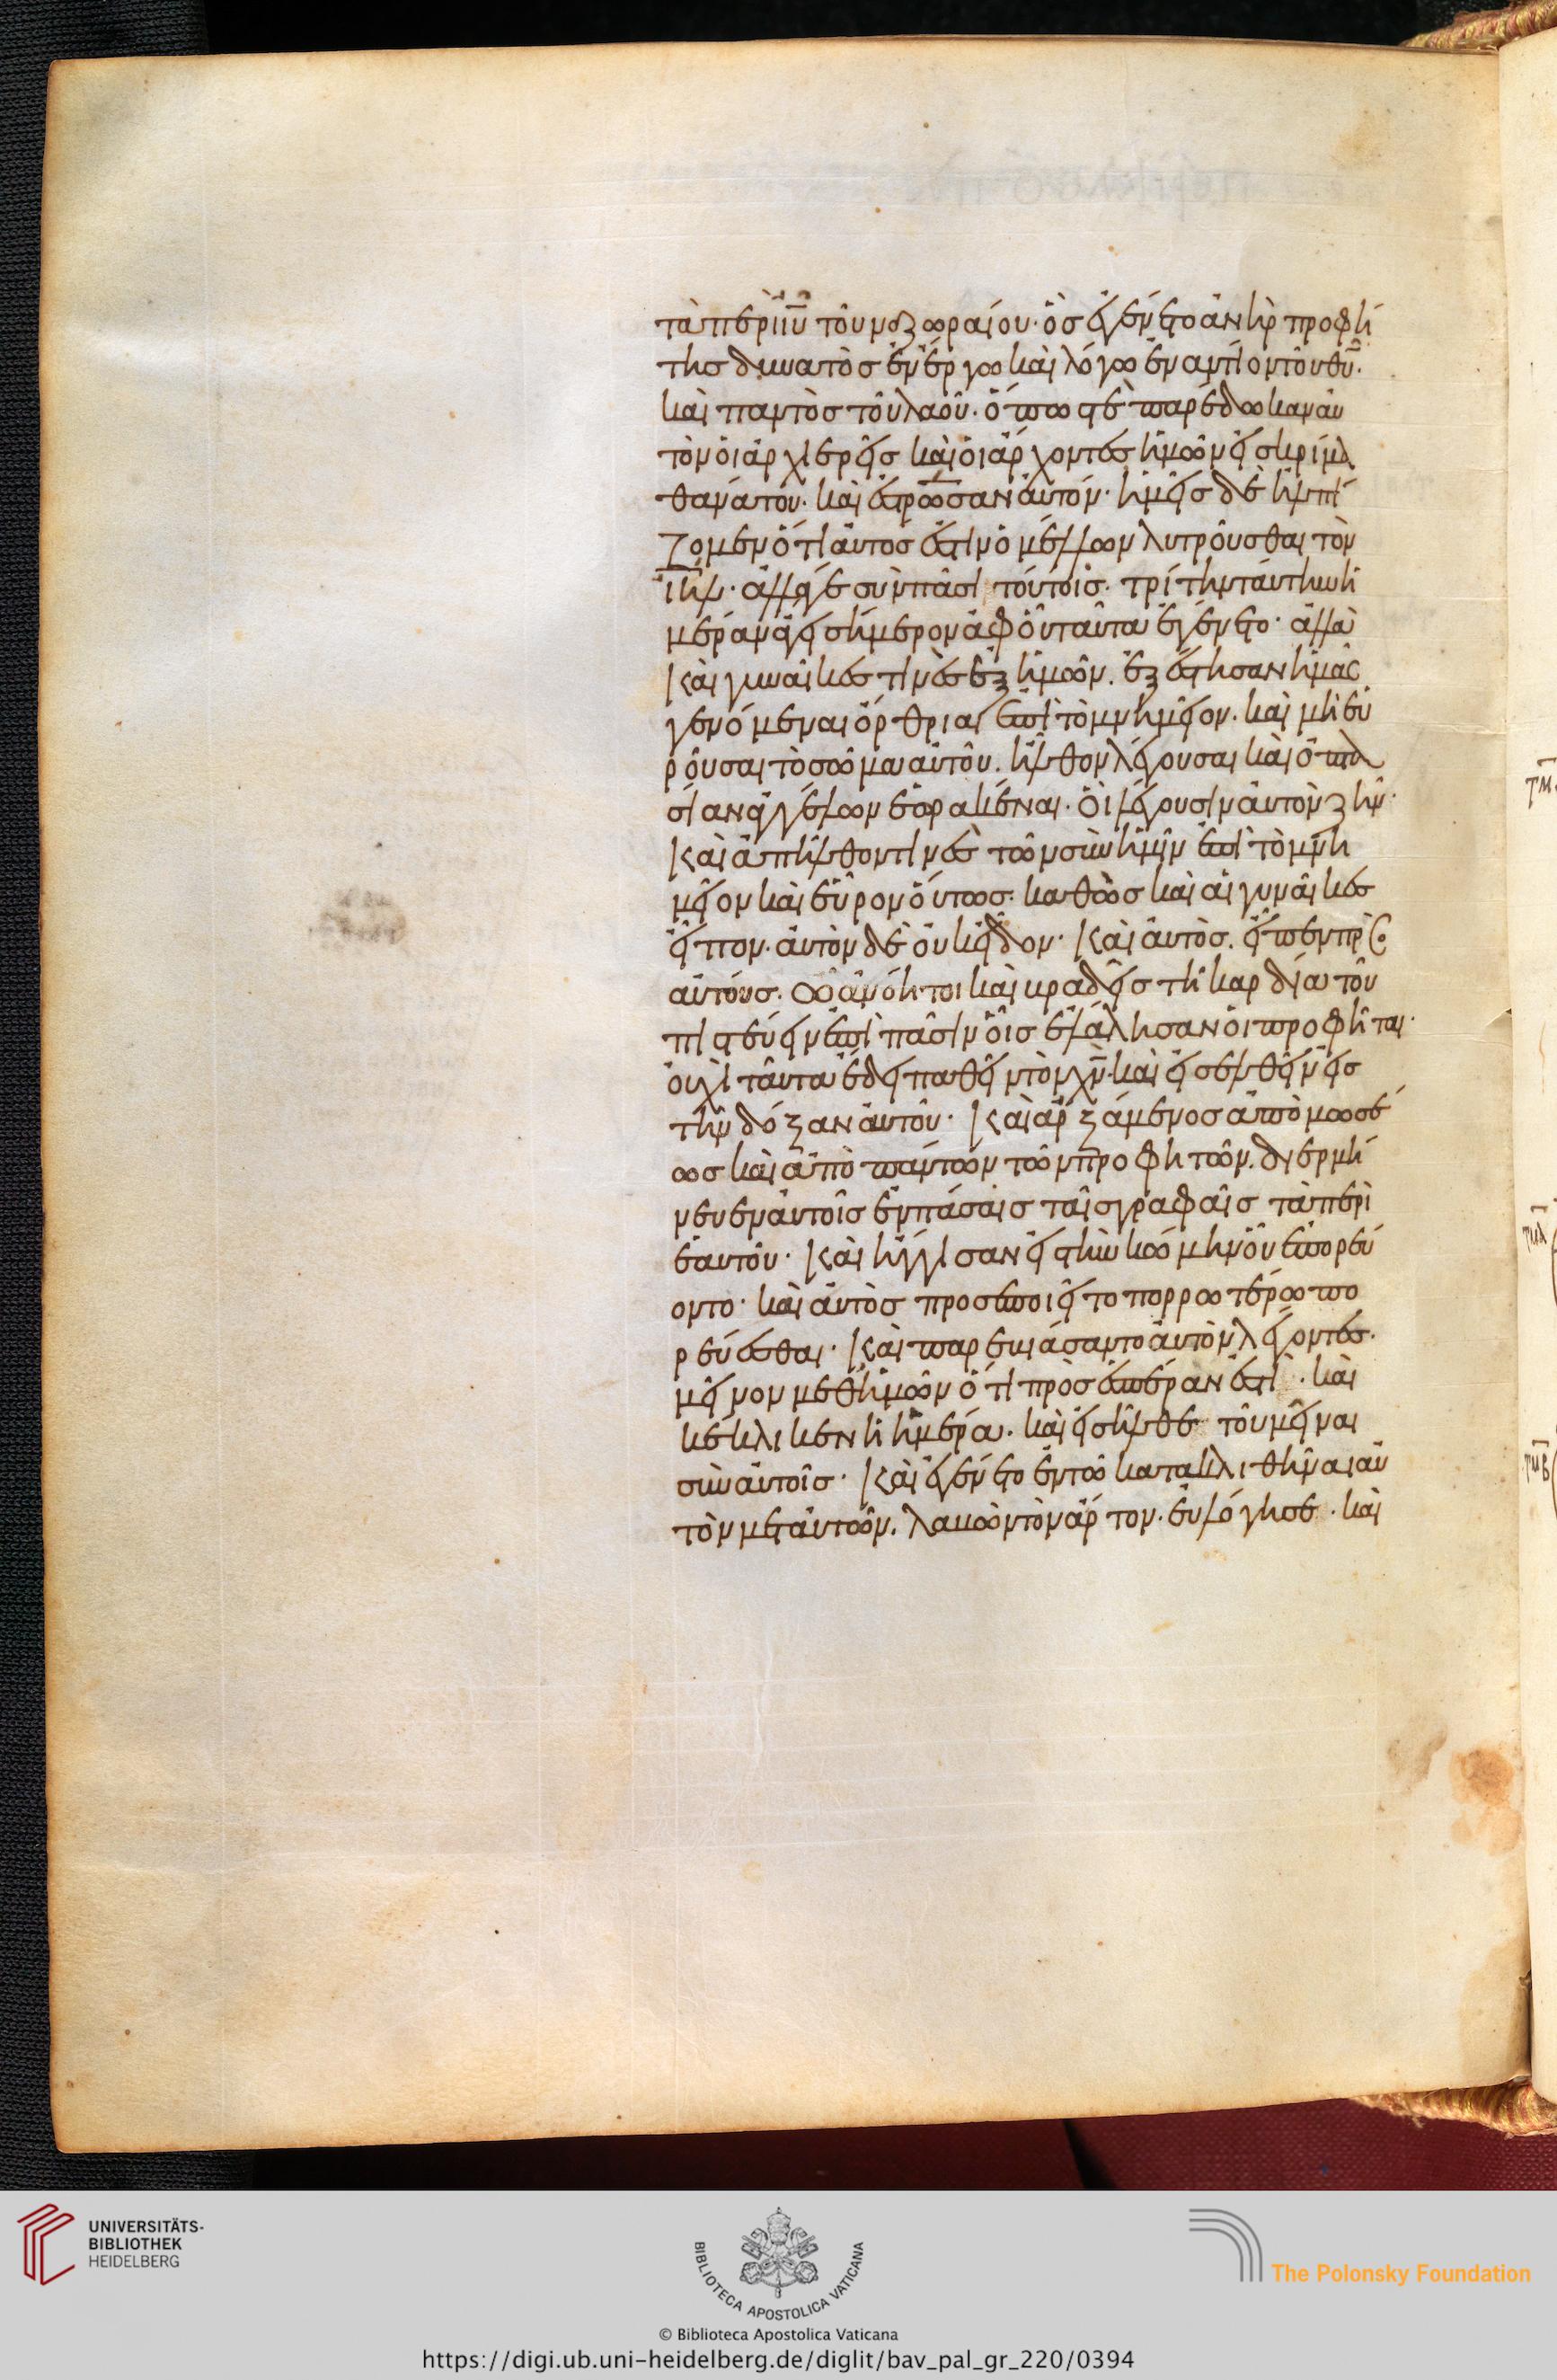 τὰ περὶ ἰυ τοῦ ναζωραίου· ὃς ἐγένετο ἀνὴρ προφή
της δυνατὸς ἐν ἔργω καὶ λόγω ἐναντίον τοῦ θυ·
καὶ παντὸς τοῦ λαοῦ· ὅπως τε παρέδωκαν αὐ
τὸν οἱ ἀρχιερεῖς καὶ οἱ ἄρχοντες ἡμῶν εἰς κρίμα
θανάτου· καὶ ἐστρωσαν αὐτόν· ἡμεῖς δὲ ἠλπί
ζομεν ὅτι αὐτός ἐστιν ὁ μέλλων λυτροῦσθαι τὸν
ιηλ· ἀλλά γε σὺν πᾶσι τούτοις· τρίτην ταύτην ἡ
μέραν ἄγει σήμερον ἀφ οὗ ταῦτα ἐγένετο· ἀλλὰ
καὶ γυναῖκες τινὲς ἐξ ἡμῶν· ἐξέστησαν ἡμᾶς
γενόμεναι ὄρθριαι ἐπὶ τὸ μνημεῖον· καὶ μὴ εὑ
ροῦσαι τὸ σῶμα αὐτοῦ· ἦλθον λέγουσαι καὶ ὀπτα
σίαν ἀγγέλων ἑωρακέναι· οἳ λέγουσιν αὐτὸν ζῆν·
καὶ ἀπῆλθον τινὲς τῶν σὺν ἡμῖν ἐπὶ τὸ μνη
μεῖον καὶ εὗρον οὕτως· καθὼς καὶ αἱ γυναῖκες
εἶπον· αὐτὸν δὲ οὐκ εἶδον· καὶ αὐτὸς· εἶπεν πρὸς
αὐτούς· ὦ ἀνόητοι καὶ βραδεῖς τῆ καρδία τοῦ
πιστεύειν ἐπὶ πᾶσιν οἷς ἐλάλησαν οἱ προφῆται·
οὐχὶ ταῦτα ἔδει παθεῖν τὸν χν· καὶ εἰσελθεῖν εἰς
τὴν δόξαν αὐτοῦ· καὶ ἀρξάμενος ἀπὸ μωσέ
ως καὶ ἀπὸ πάντων τῶν προφητῶν· διερμή
νευεν αὐτοῖς ἐν πάσαις ταῖς γραφαῖς τὰ περὶ
ἑαυτοῦ· καὶ ἤγγισαν εἰς τὴν κώμην οὗ ἐπορεύ
οντο· καὶ αὐτὸς προσεποιεῖτο πορρωτέρω πο
ρεύεσθαι· καὶ παρεβιάσαντο αὐτὸν λέγοντες·
μεῖνον μεθ ἡμῶν ὅτι πρὸς ἑσπέραν ἐστὶ· καὶ
κέκλικεν ἡ ἡμέρα· καὶ εἰσῆλθε τοῦ μεῖναι
σὺν αὐτοῖς· καὶ ἐγένετο ἐν τῶ κατακλιθῆναι αὐ
τὸν μετ αὐτῶν· λαβὼν τὸν ἄρτον· εὐλόγησε· καὶ
UNIVERSITÄTS-
BIBLIOTHEK
HEIDELBERG
BIBLIOTECA APOSTOLICA VATICANA
The Polonsky Foundation
© Biblioteca Apostolica Vaticana
https://digi.ub.uni-heidelberg.de/diglit/bav_pal_gr_220/0394